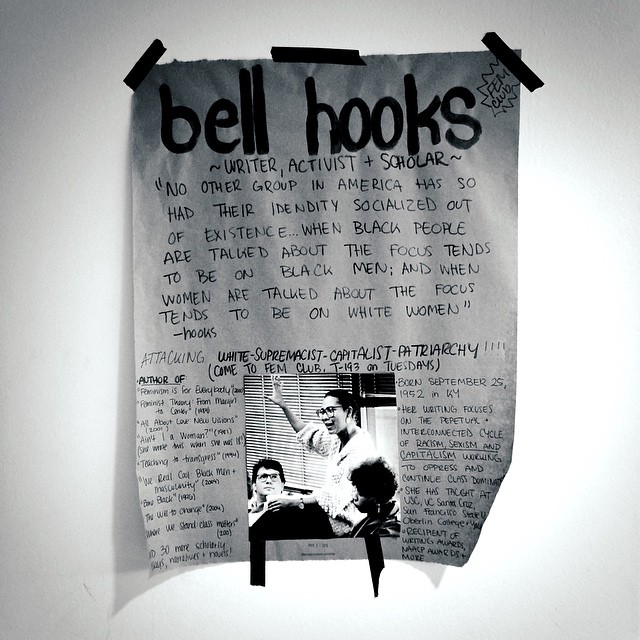 bell hooks
FEM
CLUB
~WRITER, ACTIVIST + SCHOLAR~
"NO OTHER GROUP IN AMERICA HAS SO
HAD THEIR IDENDITY SOCIALIZED OUT
OF EXISTENCE... WHEN BLACK PEOPLE
ARE TALKED ABOUT THE FOCUS TENDS
TO BE ON BLACK MEN; AND WHEN
WOMEN ARE TALKED ABOUT THE FOCUS
TENDS TO BE ON WHITE WOMEN"
-hooks
ATTACKING WHITE-SUPREMACIST-CAPITALIST-PATRIARCHY!!!!
(COME TO FEM CLUB, T-193 on TUESDAYS)
·AUTHOR OF
"Feminism is For Everybody"
"Feminist Theory: From Margin
to Center" (1984)
"All About Love: New Visions"
(2001)
"Ain't I a Woman?" (1981)
(she wrote this when she was 19)
"Teaching to transgress" (1994)
"We Real Cool: Black Men +
masculinity" (2004)
"Bone Black" (1996)
"The will to change" (2004)
"Where We Stand: class matters"
(2000)
30 more scholarly
+ novels!
·BORN SEPTEMBER 25,
1952 in KY
·HER WRITING FOCUSES
ON THE PEPETUAL +
INTERCONNECTED CYCLE
OF RACISM, SEXISM AND
CAPITALISM WORKING
TO OPPRESS AND
CONTINUE CLASS DOMINAT
·SHE HAS TAUGHT AT
USC, UC Santa Cruz,
San Francisco State
Oberlin College +
·RECIPIENT OF
WRITING AWARDS,
NAACP AWARDS +
MORE